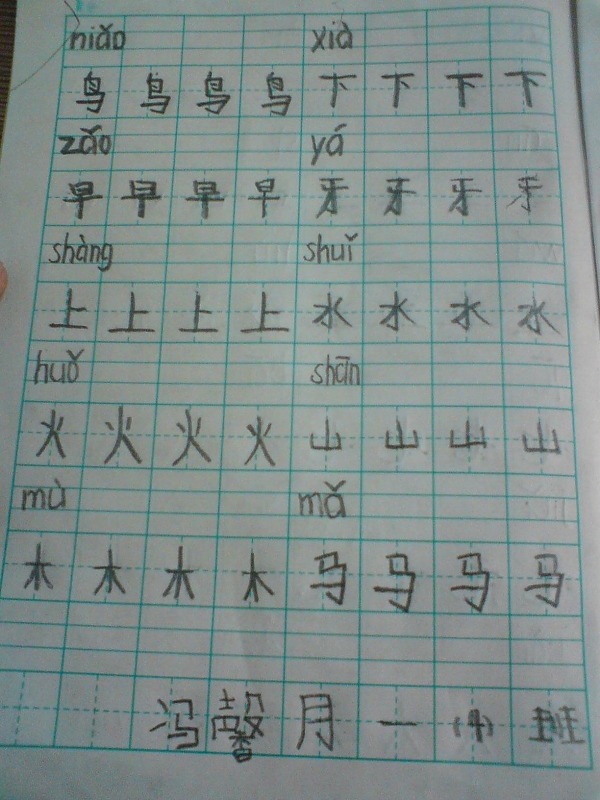 niǎo xià
鸟 鸟 鸟 鸟 下 下 下 下
zǎo yá
早 早 早 早 牙 牙 牙 牙
shàng shuǐ
上 上 上 上 水 水 水 水
huǒ shān
火 火 火 火 山 山 山 山
mù mǎ
木 木 木 木 马 马 马 马
冯馨月 一 (4) 班